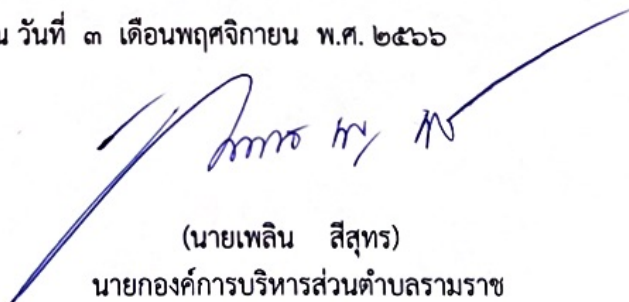 วันที่ ๓ เดือนพฤศจิกายน พ.ศ. ๒๕๖๖
(นายเพลิน สีสุทร)
นายกองค์การบริหารส่วนตำบลรามราช